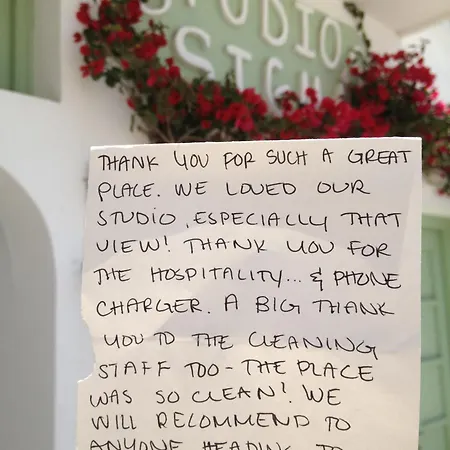 STUDIO
THANK YOU FOR SUCH A GREAT
PLACE. WE LOVED OUR
STUDIO, ESPECIALLY THAT
VIEW! THANK YOU FOR
THE HOSPITALITY... & PHONE
CHARGER. A BIG THANK
YOU TO THE CLEANING
STAFF TOO - THE PLACE
WAS SO CLEAN! WE
WILL RECOMMEND TO
ANYONE HEADING TO